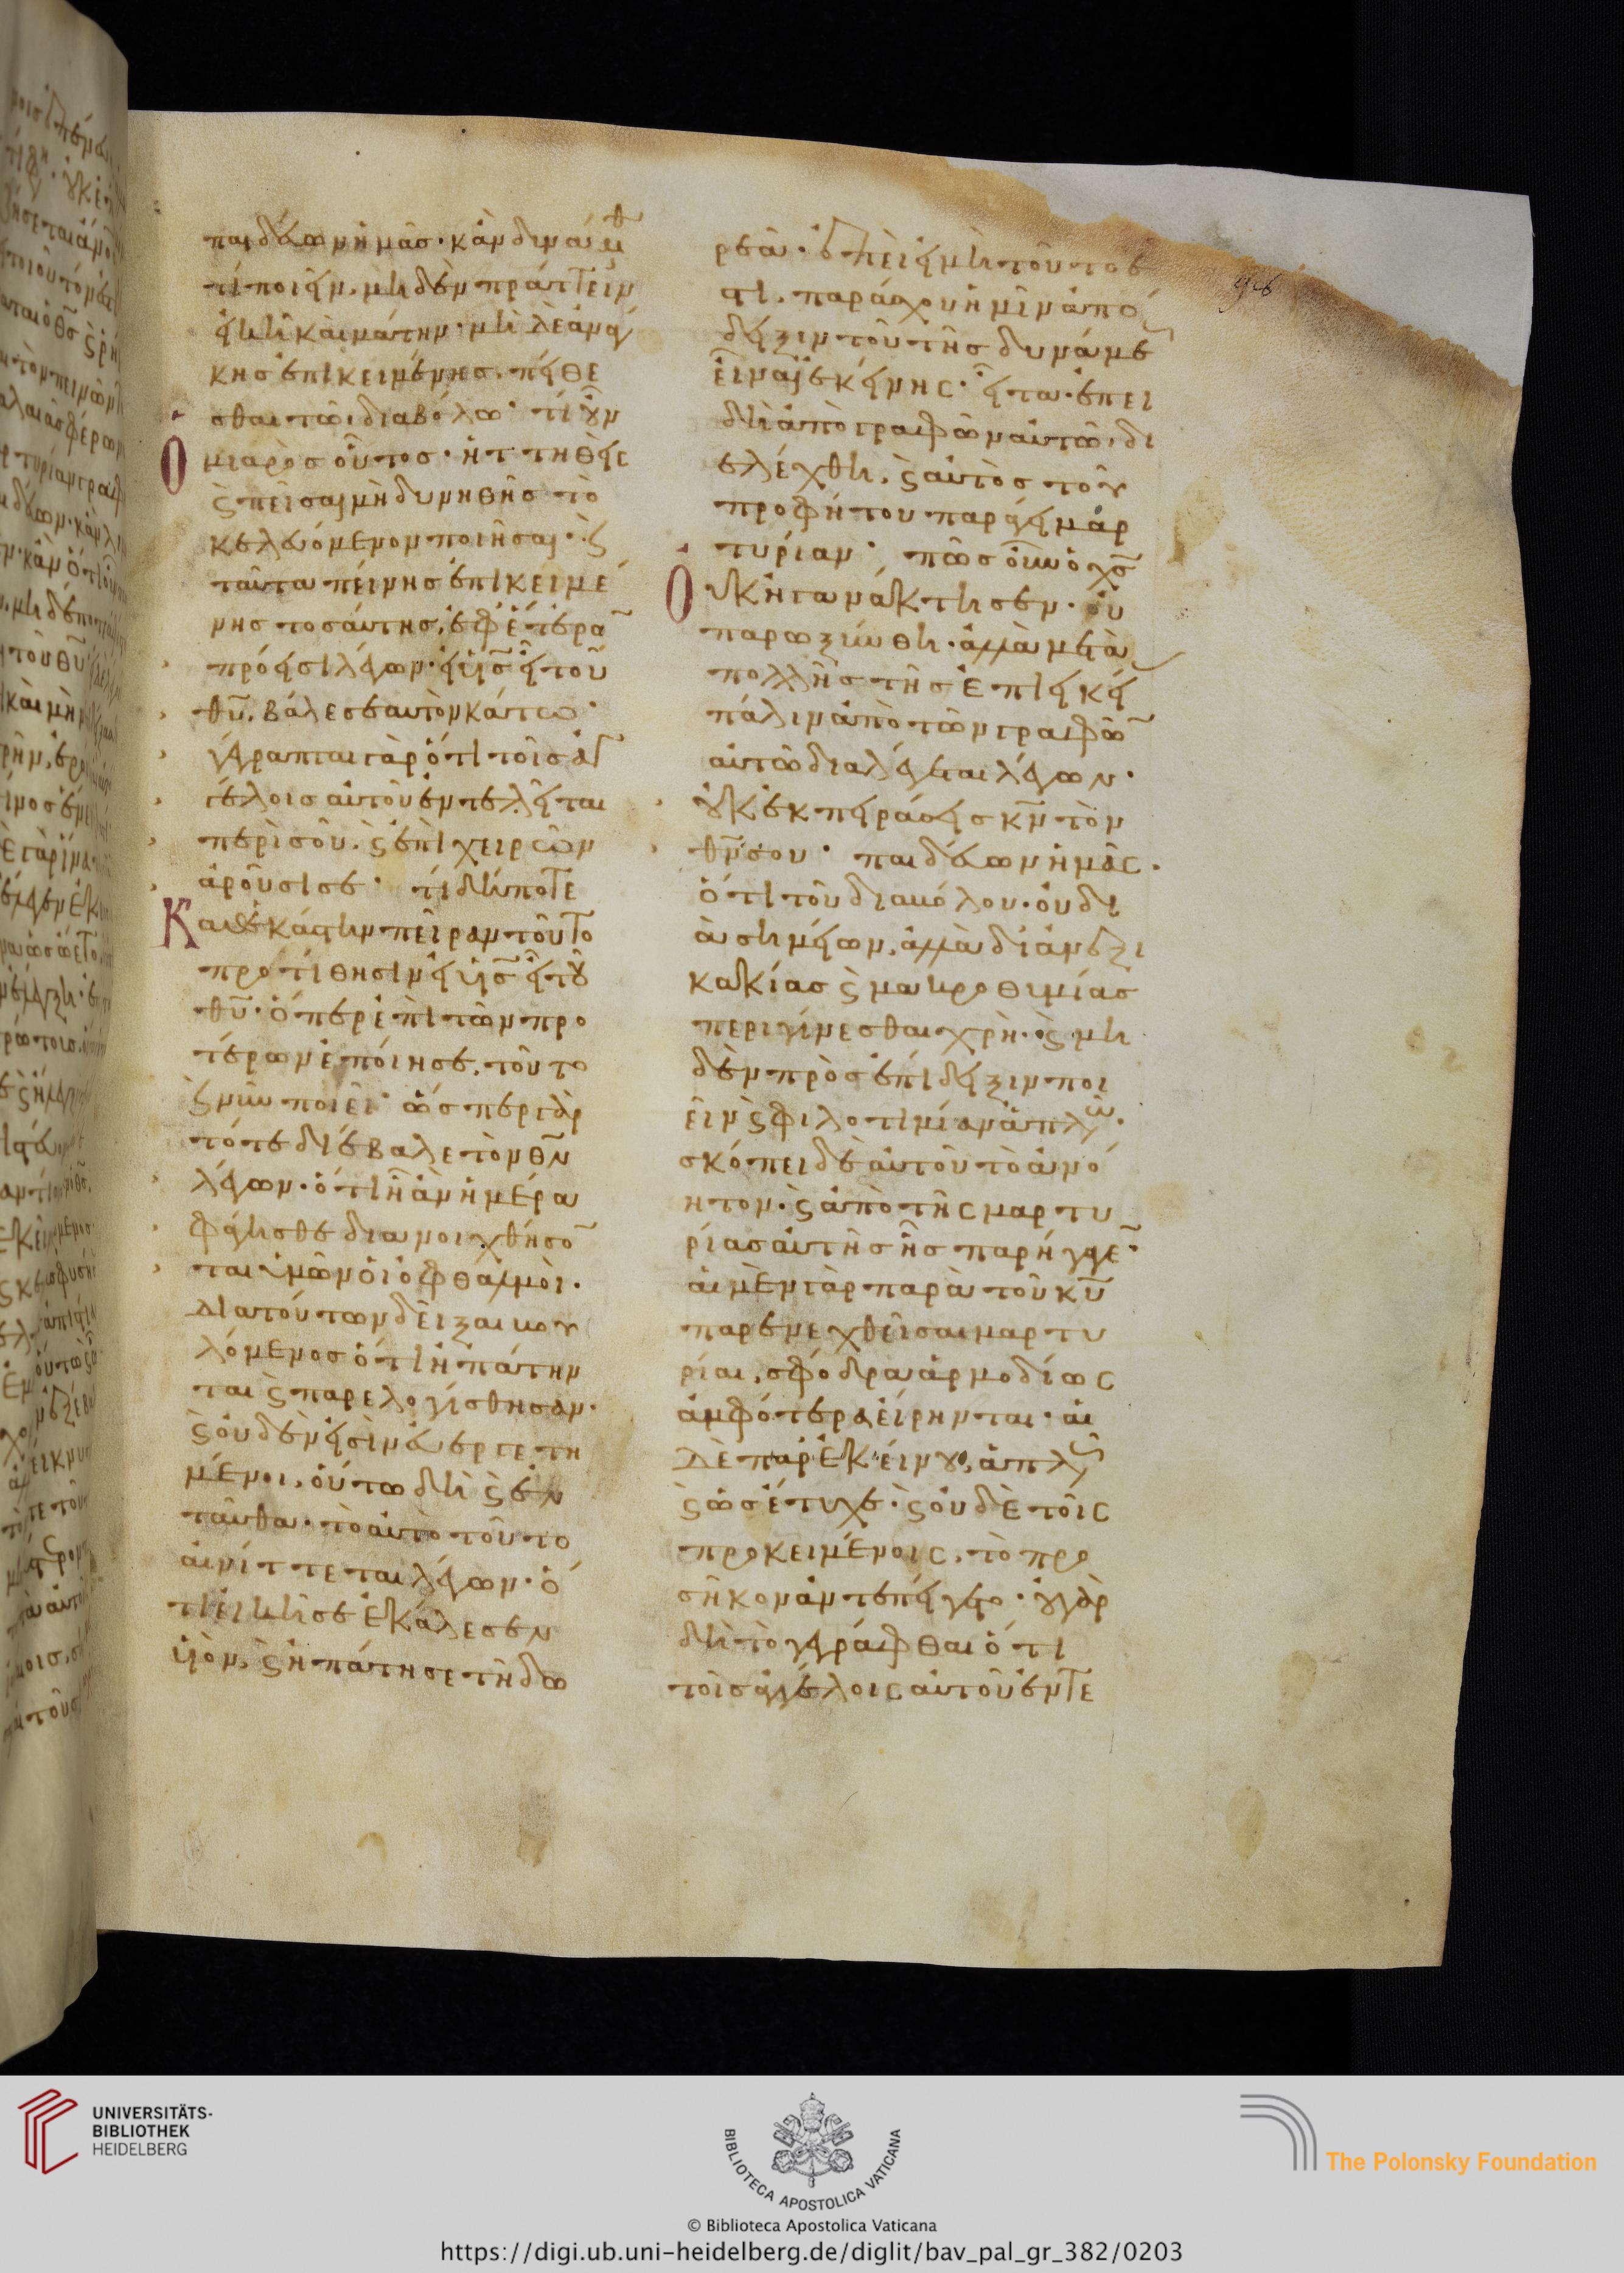 παιδεύων ἡμᾶς· κἂν δυναίμεθ
τί ποιεῖν, μηδὲν πράττειν
εἰκῆ καὶ μάτην· μὴ δὲ ἀνάγ
κης ἐπικειμένης, πείθε
σθαι τῶ διαβόλω· τί οὖν
Ὁ μιαρὸς οὗτος· ἡττηθεὶς
ϗ πεῖσαι μὴ δυνηθῆς τὸ
κελευόμενον ποιῆσαι· ϗ
ταῦτα πείνης ἐπικειμέ
νης τοσαύτης, ἐφ' ἕτερα
πρόεισι λέγων· εἰ υἱσ εἶ τοῦ
θυ, βάλε σεαυτὸν κάτω·
γέγραπται γὰρ ὅτι τοῖς ἀγ
γέλοις αὐτοῦ ἐντελεῖται
περὶ σοῦ. ϗ ἐπὶ χειρῶν
ἀροῦσί σε· τί δήποτε
Καθ' ἑκάστην πεῖραν τοῦτο
προστίθησιν εἰ υἱσ εἶ τοῦ
θυ· ὅπερ ἐπὶ τῶν προ
τέρων ἐποίησε, τοῦτο
ϗ νῦν ποιεῖ· ὥσπερ γὰρ
τότε διέβαλε τὸν θν
λέγων· ὅτι ἧ ἂν ἡμέρα
φάγησθε διανοιχθήσον
ται ὑμῶν οἱ ὀφθαλμοί.
διὰ τούτων δεῖξαι βου
λόμενος ὅτι ἠπάτην
ται ϗ παρελογίσθησαν·
ϗ οὐδὲν εἰσὶν εὐεργετη
μένοι, οὕτω δὴ ϗ ἐν
ταῦθα· τὸ αὐτὸ τοῦτο
αἰνίττεται λέγων· ὅ
τι εἰκῆ σε ἐκάλεσεν
υἱόν, ϗ ἠπάτησε τῆ δω
ρεᾶ· ἐπεὶ εἰ μὴ τοῦτο ἐ
στι, παράσχου ἡμῖν ἀπό
δειξιν τοῦ τῆς δυνάμε
εἶναί σε ἐκείνης· εἶτα ἐπει
δὴ ἀπὸ γραφῶν αὐτῶ δι
ελέχθη, ϗ αὐτὸς τοῦ
προφήτου παράγει μαρ
τυρίαν· πῶς οὖν ὁ χσ
Οὐκ ἠγανάκτησεν· οὐ
παρωξύνθη· ἀλλὰ μετὰ
πολλῆς τῆς ἐπιεικεί
πάλιν ἀπὸ τῶν γραφῶν
αὐτῶ διαλέγεται λέγων·
οὐκ ἐκπειράσεις κν τὸν
θν σου· παιδεύων ἡμᾶς.
ὅτι τοῦ διαβόλου· οὐ δι
ὰ σημείων, ἀλλὰ δι' ἀνεξι
κακίας ϗ μακροθυμίας
περιγίνεσθαι χρή· ϗ μη
δὲν πρὸς ἐπίδειξιν ποι
εῖν ϗ φιλοτιμίαν ἁπλῶ·
σκόπει δὲ αὐτοῦ τὸ ἀνό
ητον· ϗ ἀπὸ τῆς μαρτυ
ρίας αὐτῆς ἧς παρήγαγε·
αἱ μὲν γὰρ παρὰ τοῦ κυ
παρενεχθεῖσαι μαρτυ
ρίαι, σφόδρα ἁρμοδίως
ἀμφότεραι εἴρηνται· αἱ
δὲ παρ' ἐκείνου, ἁπλῶς
ϗ ὡς ἔτυχε· ϗ οὐδὲ τοῖς
προκειμένοις, τὸ προ
σῆκον ἀντεπήγετο· οὐ γὰρ
δὴ τὸ γεγράφθαι ὅτι
τοῖς ἀγγέλοις αὐτοῦ ἐντε
UNIVERSITÄTS-
BIBLIOTHEK
HEIDELBERG
BIBLIOTECA APOSTOLICA VATICANA
© Biblioteca Apostolica Vaticana
The Polonsky Foundation
https://digi.ub.uni-heidelberg.de/diglit/bav_pal_gr_382/0203